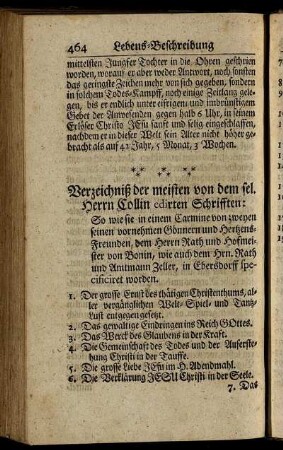 464 Lebens-Beschreibung
mittelsten Jungfer Tochter in die Ohren geschrien
worden, worauf er aber weder Antwort, noch sonsten
das geringste Zeichen mehr von sich gegeben, sondern
in solchem Todes-Kampff, noch einige Zeitlang gele-
gen, bis er endlich unter eifrigem und imbrünstigem
Gebet der Anwesenden gegen halb 6 Uhr, in seinem
Erlöser Christo JEsu sanft und selig eingeschlaffen,
nachdem er in dieser Welt sein Alter nicht höher ge-
bracht als auf 42 Jahr, 5 Monat, 3 Wochen.
Verzeichniß der meisten von dem sel.
Herrn Collin edirten Schrifften:
So wie sie in einem Carmine von zweyen
seinen vornehmen Gönnern und Hertzens-
Freunden, dem Herrn Rath und Hofmei-
ster von Bonin, wie auch dem Hrn. Rath
und Amtmann Zeller, in Ebersdorff spe-
cificiret worden.
1. Der grosse Ernst des thätigen Christenthums, al-
ler vergänglichen Welt- Spiel- und Tantz-
Lust entgegen gesetzt.
2. Das gewaltige Eindringen ins Reich GOttes.
3. Das Werck des Glaubens in der Kraft.
4. Die Gemeinschaft des Todes und der Auferste-
hung Christi in der Tauffe.
5. Die grosse Liebe JEsu im H. Abendmahl.
6. Die Verklärung JESU Christi in der Seele.
7. Das